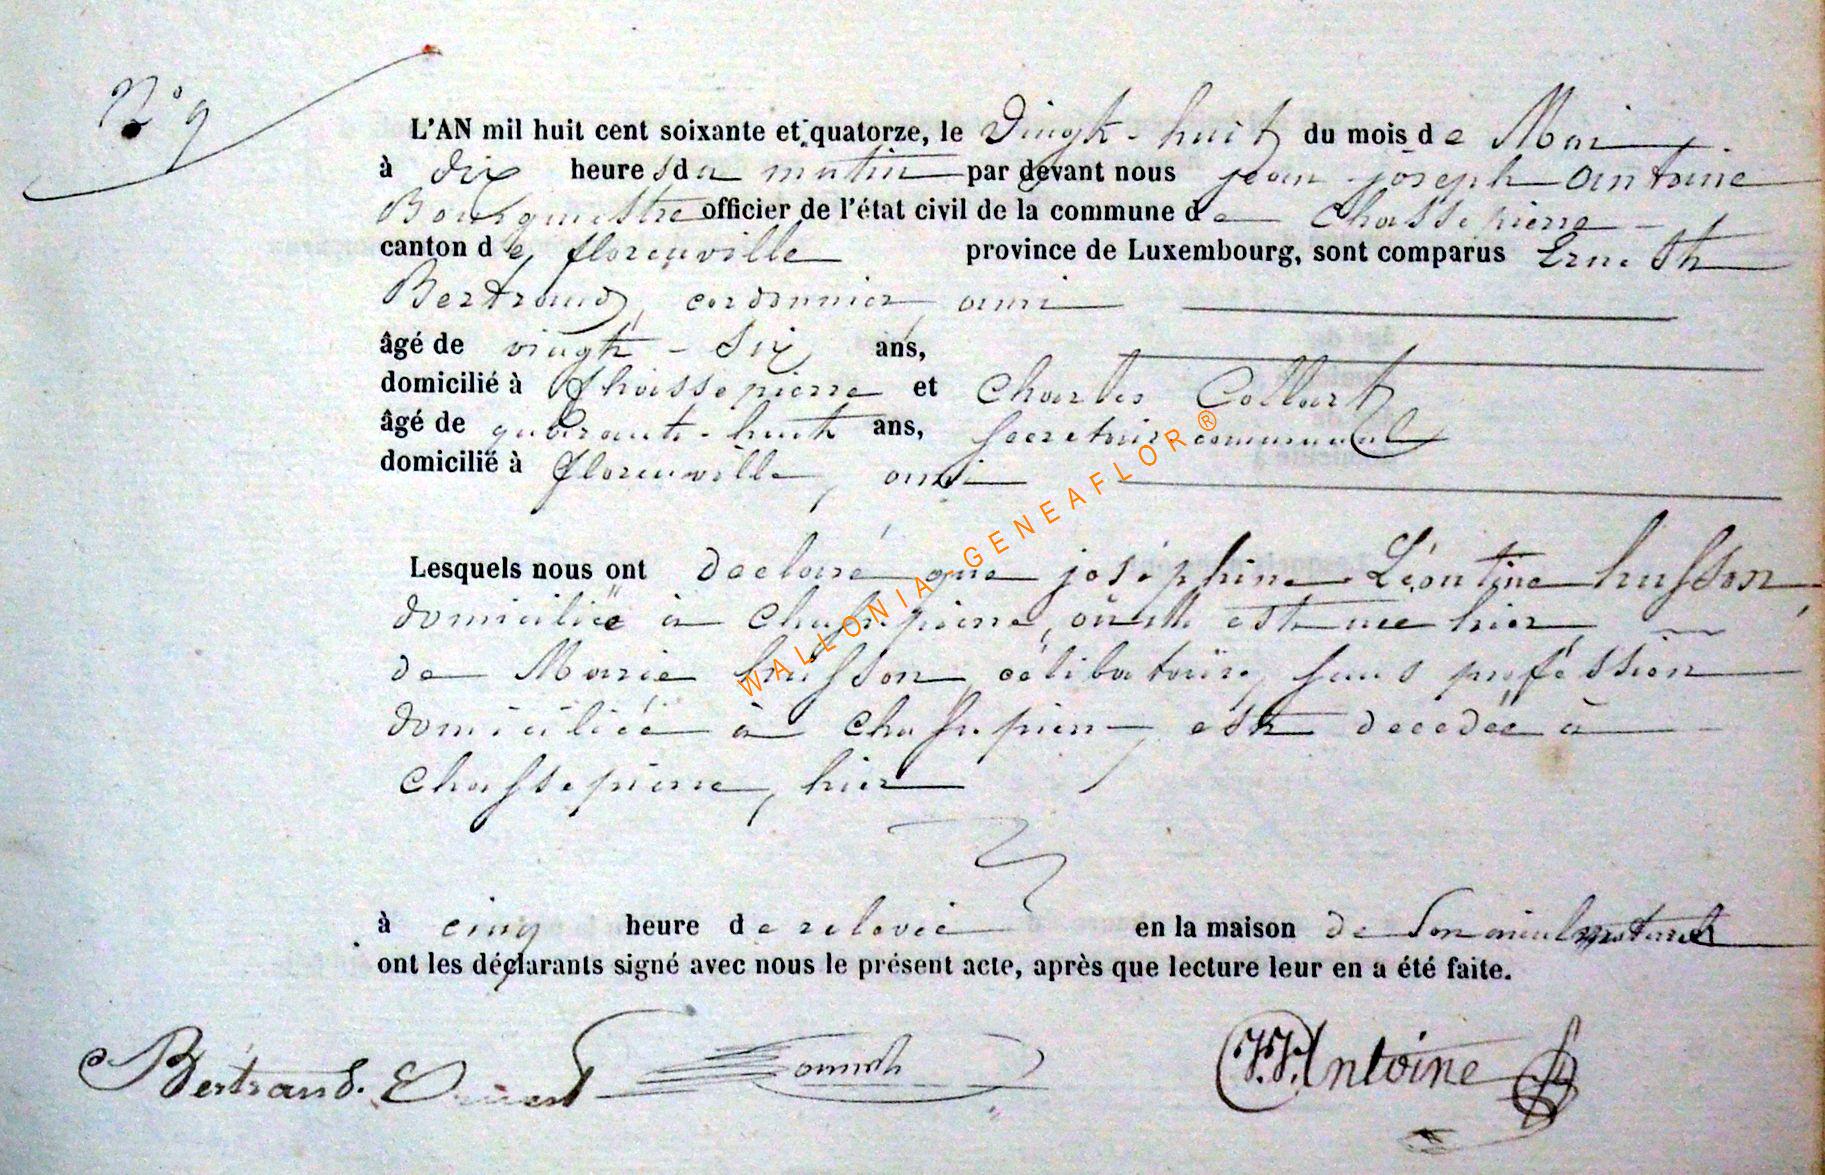 N° 9
L'AN mil huit cent soixante et quatorze, le Vingt-huit du mois de Mai
à dix heures du matin par devant nous jean joseph antoine
Bourgmestre officier de l'état civil de la commune de Chassepierre
canton de florenville province de Luxembourg, sont comparus Ernest
Bertrand, cordonnier, ami
âgé de vingt-six ans,
domicilié à Chassepierre et Charles Collart
âgé de quarante-huit ans, secretaire communal
domicilié à florenville, ami
Lesquels nous ont declaré que joséphine Léontine husson,
domiciliée à Chassepierre, où elle est née hier
de Marie husson, célibataire, sans profession
domiciliée à Chassepierre, est decedée à
Chassepierre, hier
à cinq heure de relevée en la maison de son aieul maternel
ont les déclarants signé avec nous le présent acte, après que lecture leur en a été faite.
Bertrand. Ernest J.J. Antoine
WALLONIA-GENEAFLOR®